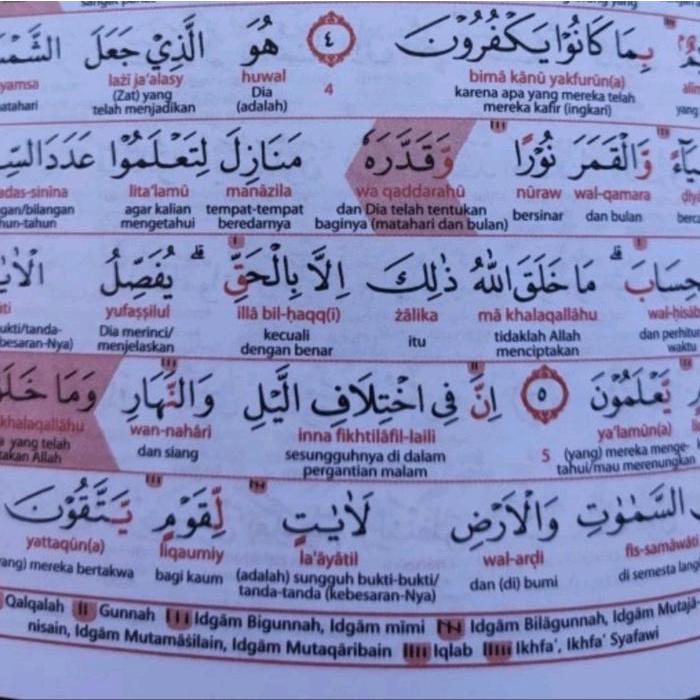 بِمَا كَانُوْا يَكْفُرُوْنَ ٤ هُوَ الَّذِيْ جَعَلَ
bimā kānū yakfurūn(a) 4 huwal lażī ja'alasy
karena apa yang mereka telah Dia (Zat) yang
mereka kafir (ingkari) (adalah) telah menjadikan matahari
وَّالْقَمَرَ نُوْرًا وَّقَدَّرَهٗ مَنَازِلَ لِتَعْلَمُوْا
wal-qamara nūraw wa qaddarahū manāzila lita'lamū
dan bulan bersinar dan Dia telah tentukan tempat-tempat agar kalian
baginya (matahari dan bulan) beredarnya mengetahui
مَا خَلَقَ اللّٰهُ ذٰلِكَ اِلَّا بِالْحَقِّ ۗ يُفَصِّلُ
mā khalaqallāhu żālika illā bil-ḥaqq(i) yufaṣṣilul
tidaklah Allah itu kecuali Dia merinci/
menciptakan dengan benar menjelaskan
يَّعْلَمُوْنَ ٥ اِنَّ فِى اخْتِلَافِ الَّيْلِ وَالنَّهَارِ وَمَا
ya'lamūn(a) 5 inna fikhtilāfil-laili wan-nahāri khalaqallāhu
(yang) mereka menge- sesungguhnya di dalam dan siang yang telah
tahui/mau merenungkan pergantian malam Allah
السَّمٰوٰتِ وَالْاَرْضِ لَاٰيٰتٍ لِّقَوْمٍ يَّتَّقُوْنَ
fis-samāwāti wal-arḍi la'āyātil liqaumiy yattaqūn(a)
di semesta dan (di) bumi (adalah) sungguh bukti-bukti/ bagi kaum mereka bertakwa
tanda-tanda (kebesaran-Nya)
Qalqalah Gunnah Idgām Bigunnah, Idgām mīmi Idgām Bilāgunnah, Idgām Mutajā-
nisain, Idgām Mutamāṡilain, Idgām Mutaqāribain Iqlab Ikhfa', Ikhfa' Syafawi